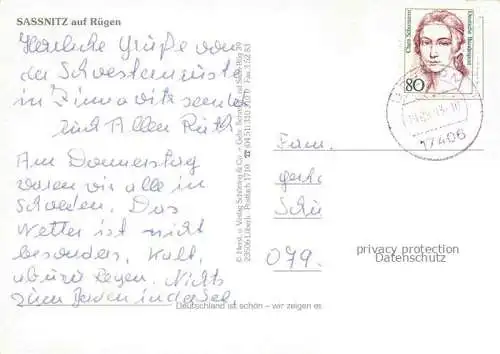 SASSNITZ auf Rügen
Herzliche Grüße von
der Schwesternrüste
in Zinnowitz sendet
und Allen Ruth
Am Donnerstag
waren wir alle in
Schweden. Das
Wetter ist nicht
besonders, kalt,
ab u zu Regen. Nichts
zum Baden in der See.
© Herst. u. Verlag Schöning & Co. + Gebr. Schmidt
23506 Lübeck, Postfach 1710
Deutschland ist schön – wir zeigen es
Clara Schumann
Deutsche Bundespost
80
17406
Fam.
Schü
079
privacy protection
Datenschutz